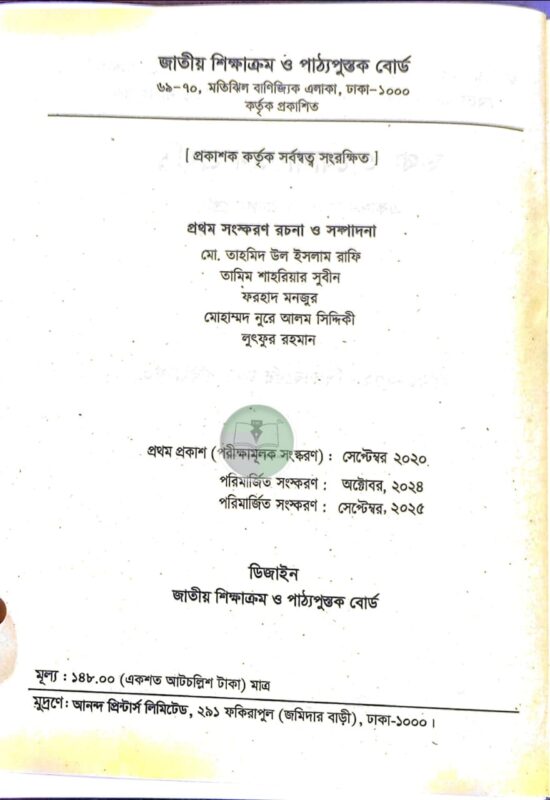 জাতীয় শিক্ষাক্রম ও পাঠ্যপুস্তক বোর্ড
৬৯-৭০, মতিঝিল বাণিজ্যিক এলাকা, ঢাকা-১০০০
কর্তৃক প্রকাশিত
[ প্রকাশক কর্তৃক সর্বস্বত্ব সংরক্ষিত ]
প্রথম সংস্করণ রচনা ও সম্পাদনা
মো. তাহমিদ উল ইসলাম রাফি
তামিম শাহরিয়ার সুবীন
ফরহাদ মনজুর
মোহাম্মদ নূরে আলম সিদ্দিকী
লুৎফুর রহমান
প্রথম প্রকাশ (পরীক্ষামূলক সংস্করণ) : সেপ্টেম্বর ২০২০
পরিমার্জিত সংস্করণ : অক্টোবর, ২০২৪
পরিমার্জিত সংস্করণ : সেপ্টেম্বর, ২০২৫
ডিজাইন
জাতীয় শিক্ষাক্রম ও পাঠ্যপুস্তক বোর্ড
মূল্য : ১৪৮.০০ (একশত আটচল্লিশ টাকা) মাত্র
মুদ্রণে: আনন্দ প্রিন্টার্স লিমিটেড, ২৯১ ফকিরাপুল (জমিদার বাড়ী), ঢাকা-১০০০।